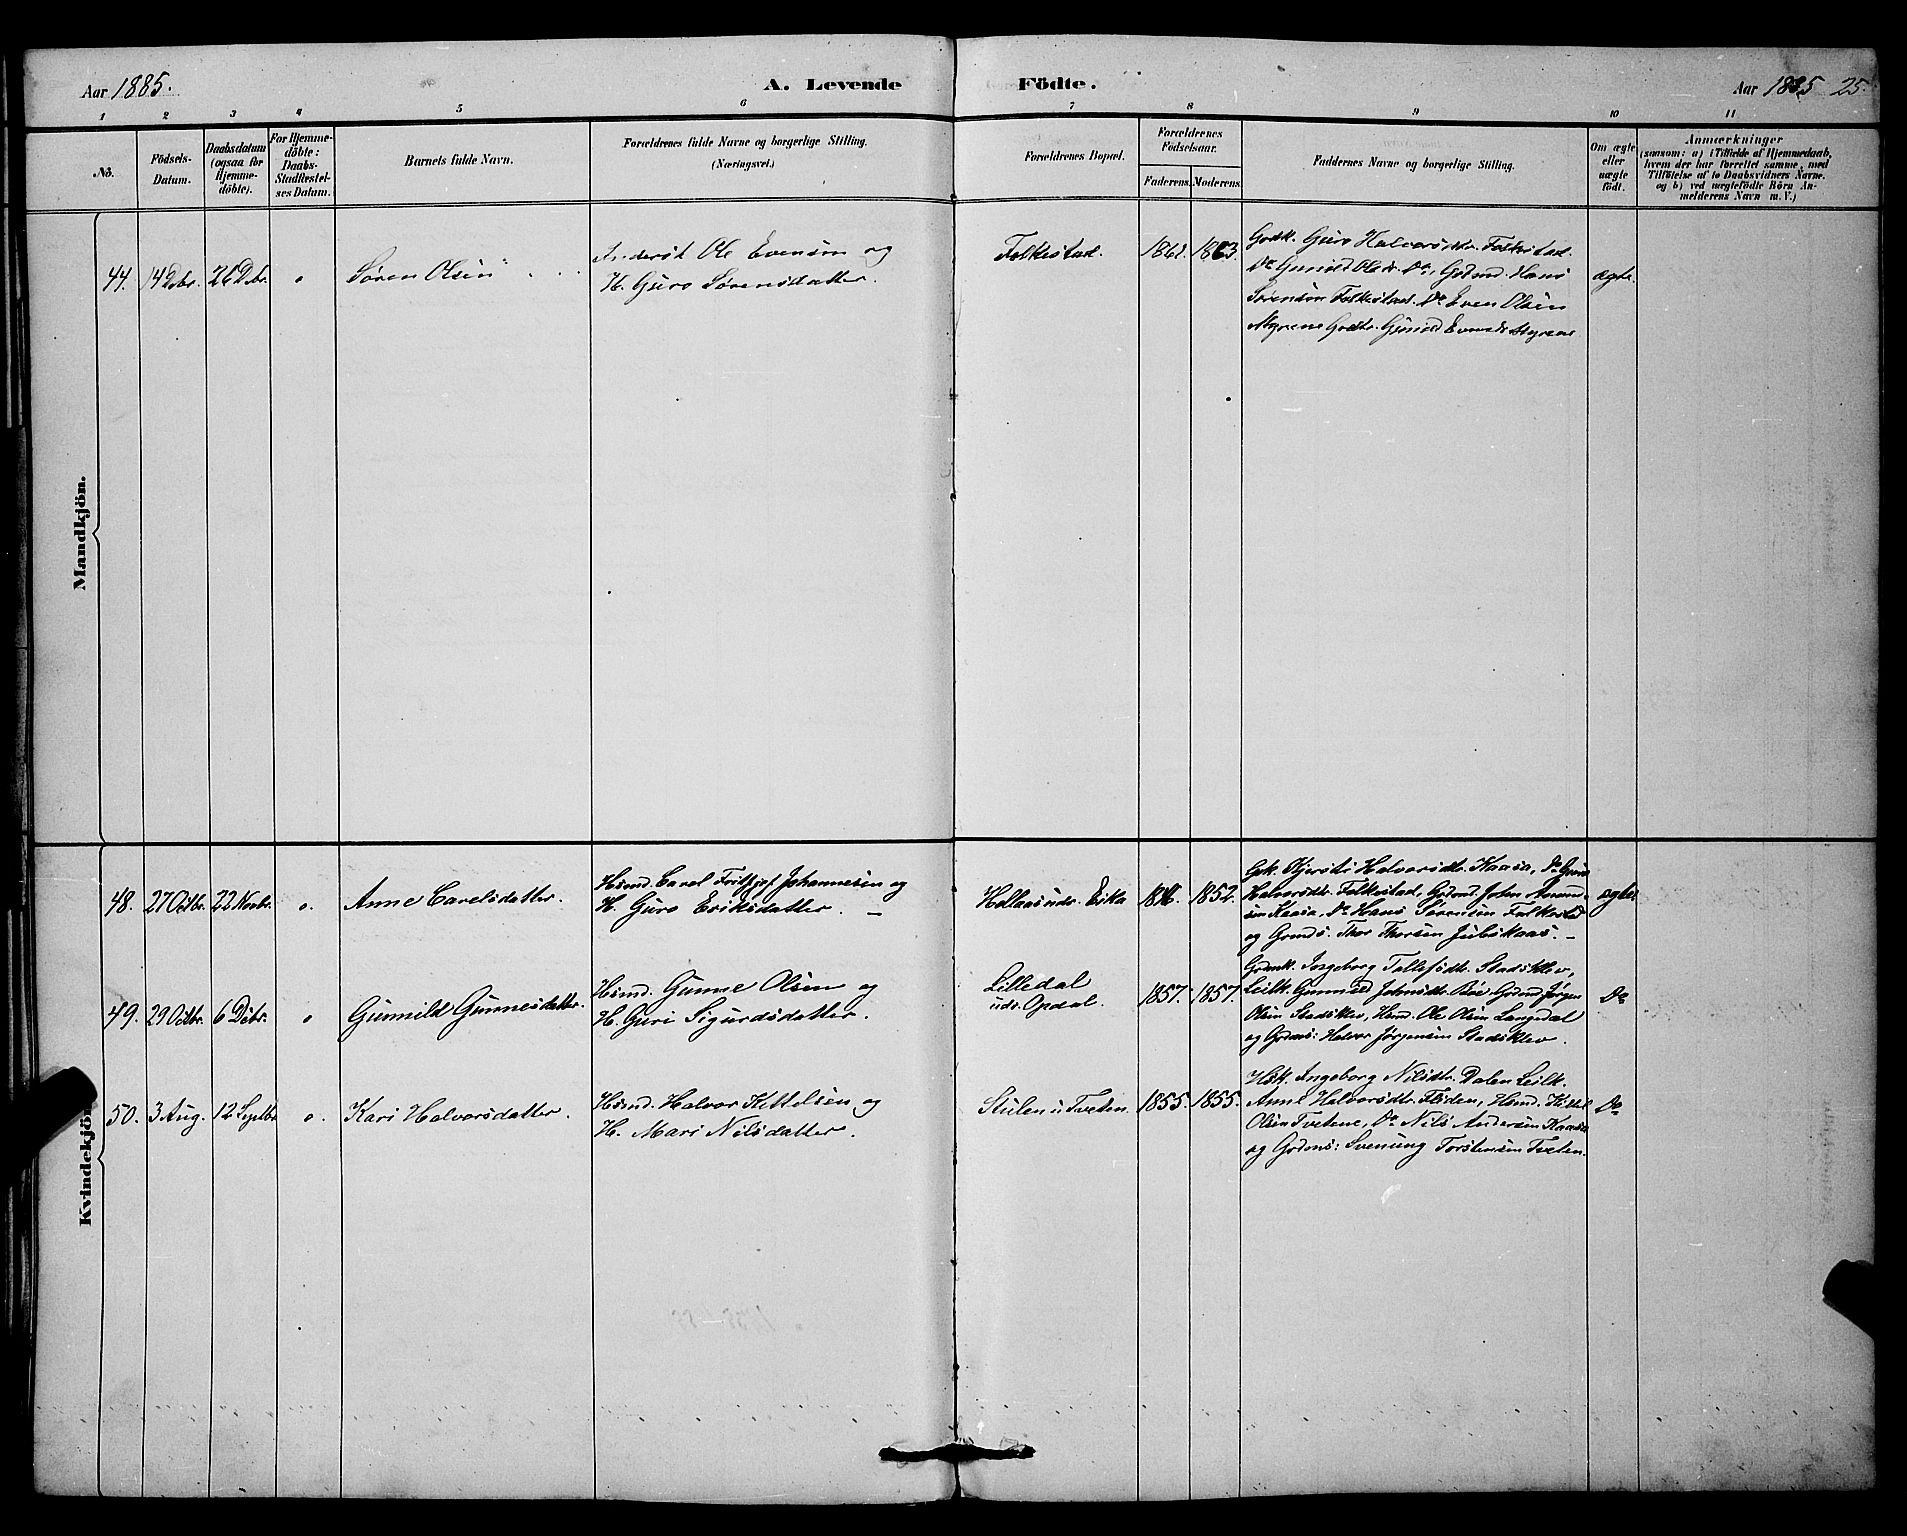 Aar 1885.
A. Levende
Födte.
Aar 1885 25.
1 2 3 4 5 6 7 8 9 10 11
No.
Födsels-
Datum.
Daabsdatum
(ogsaa for
Hjemme-
döbte).
For Hjemme-
döbte:
Daabs-
Stadfestel-
ses Datum.
Barnets fulde Navn.
Forældrenes fulde Navne og borgerlige Stilling.
(Næringsvei.)
Forældrenes Bopæl.
Forældrenes
Födselsaar.
Faderens. Moderens.
Faddernes Navne og borgerlige Stilling.
Om ægte
eller
uægte
födt.
Anmærkninger
(saasom: a) i Tilfælde af Hjemmedaab,
hvem der har forrettet samme, med
Tilföielse af to Daabsvidners Navne.
og b) ved uægtefödte Börn An-
melderens Navn m. V.)
Mandkjön.
44.
14 Dcbr.
26 Dcbr.
Søren Olsen
Ole Evensen og
H. Guro Sørensdatter.
Folkestad.
1861.
1863.
Gdk. Guro Halvorsdtr. Folkestad.
Do Gunild Olsdr. Do, Gdmd. Hans
Sørensen Folkestad. Do Even Olsen
Myrene Gunild Evensdr. Myrene
ægte.
Kvindekjön.
48.
27 Octbr.
22 Novbr.
Anne Carelsdatter.
Hsmd. Carel Fritjof Johannesen og
H. Guro Eriksdatter. —
Hollaas udr. Eika
1852.
Gdk. Kjersti Halvorsdtr. Kaasa, Do Guro
Halvorsdtr. Folkestad, Gdmd. John Amund-
sen Kaasa, Do Hans Sørensen Folkestad
og Grdmds. Thor Thorsen Jubskaas. —
ægte
49.
29 Octbr.
6 Dcbr.
Gunnild Gunnesdatter.
Hsmd. Gunne Olsen og
H. Guri Sigurdsdatter.
Lilledal
udr. Opdal.
1857.
1857.
Ingeborg Tollefsdtr. Stadsklev,
Leilk. Gunnild Johnsdtr. Bøe Grdmd Jørgen
Olsen Stadsklev, Hsmd. Ole Olsen Langedal
og Grdmds: Halvor Jørgensen Stadsklev.
Do
50.
3 Aug.
12 Septbr.
Kari Halvorsdatter.
Hsmd. Halvor Kittelsen og
H. Mari Nilsdatter.
Stulen u. Tveten.
1855.
1855.
Hsk. Ingeborg Nilsdtr. Dalen Leilk.
Anne Halvorsdtr. Floden, Hsmd. Kittel
Olsen Tvetene, Do Nils Andersen Kaasa
og Grdmds: Svenung Torstensen Tveten.
Do